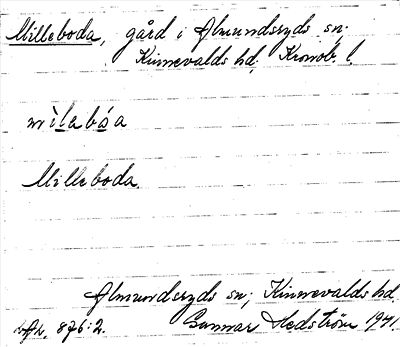 Milleboda, gård i Almundsryds sn;
Kinnevalds hd; Kronob. l.
mìlabóa
Milleboda.
Almundsryds sn; Kinnevalds hd.
876:2. Gunnar Hedström 1941.